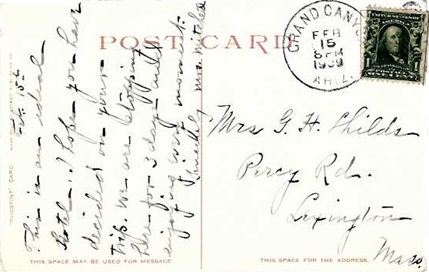 POST CARD
GRAND CANYON
FEB
15
8 PM
1909
ARIZ.
Feb. 15th
This is an ideal
hotel. I hope you have
decided on your
trip. We are stopping
here for 3 days and
enjoying every moment.
Mrs G. H. Childs
Percy Rd.
Lexington
Mass.
THIS SPACE MAY BE USED FOR MESSAGE.
THIS SPACE FOR THE ADDRESS.
"PHOSTINT" CARD